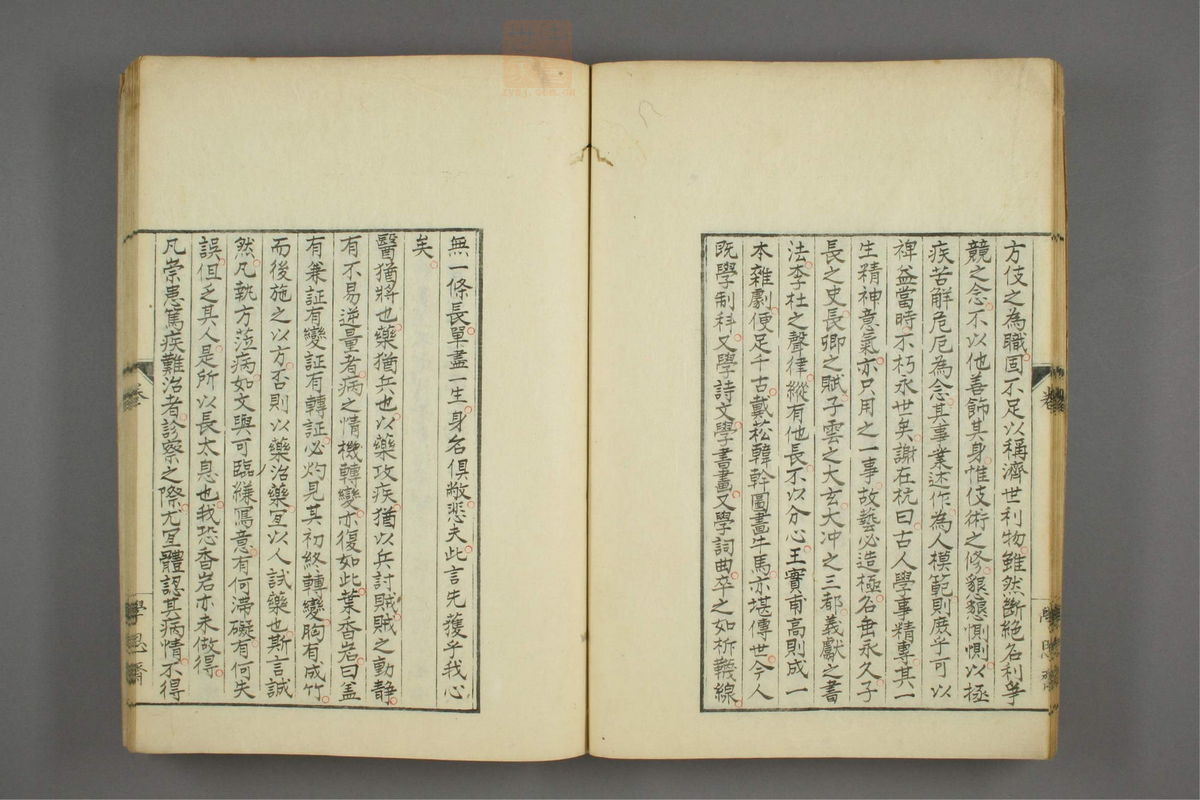 方伎之為職固不足以稱濟世利物雖然斷絕名利爭
競之念不以他善飾其身惟伎術之修懇懇惻惻以拯
疾苦解危厄為念其事業述作為人模範則庶乎可以
裨益當時不朽永世矣謝在杭曰古人學事精專其一
生精神意氣亦只用之一事故藝必造極名垂永久子
長之史長卿之賦子雲之大玄大冲之三都義獻之書
法李杜之聲律縱有他長不以分心王實甫高則成一
本雜劇便足千古戴菘韓幹圖畫牛馬亦堪傳世今人
既學制科又學詩文學書畫又學詞曲卒之如析襪線
無一條長單盡一生身名俱敝悲夫此言先獲乎我心
矣
醫猶將也藥猶兵也以藥攻疾猶以兵討賊賊之動靜
有不易逆量者病之情機轉變亦復如此葉香岩曰盖
有兼証有變証有轉証必灼見其初終轉變胸有成竹
而後施之以方否則以藥治藥亙以人試藥也斯言誠
然凡執方蒞病如文與可臨縑寫意有何滯礙有何失
誤但乏其人是所以長太息也我恐香岩亦未做得
凡崇患篤疾難治者診察之際尤宜體認其病情不得
卷
學思齋
卷
學思齋